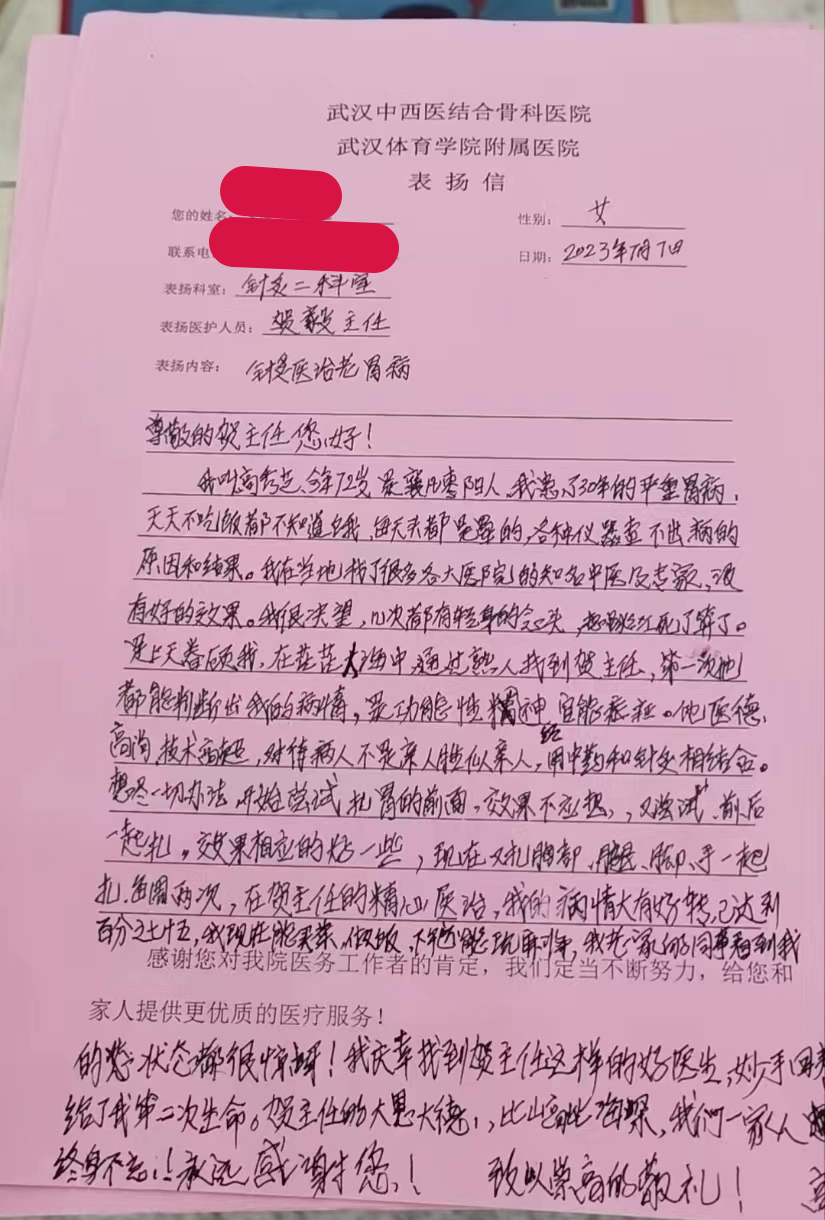 武汉中西医结合骨科医院
武汉体育学院附属医院
表扬信
您的姓名
性别：女
联系电
日期：2023年7月7日
表扬科室：针灸二科室
表扬医护人员：贺毅主任
表扬内容：针授医治老胃病
尊敬的贺主任您好！
我叫高秀芝、今年72岁是襄凡枣阳人，我患了30年的严重胃病，
天天不吃饭都不知道饿，每天头都是晕的，各种仪器查不出病的
原因和结果。我在当地找了很多各大医院的知名中医及专家，没
有好的效果。我很失望，几次都有轻身的念头，死了算了。
是上天眷顾我，在茫茫大海中通过熟人找到贺主任，第一次他
都能判断出我的病情，是功能性精神官能症。他医德
高尚，技术高超，对待病人不是亲人胜似亲人，用中药和针灸相结合。
想尽一切办法，开始尝试扎胃的前面，效果不应想，又尝试前后
一起扎，效果相应的好一些，现在又扎胸部、腿、脚、手一起
扎，每周两次，在贺主任的精心医治，我的病情大有好转，已达到
百分之七十五，我现在能买菜、做饭、我老家的同事看到我
感谢您对我院医务工作者的肯定，我们定当不断努力，给您和
家人提供更优质的医疗服务！
的状态都很惊讶！我庆幸找到贺主任这样的好医生，妙手回
给了我第二次生命。贺主任的大恩大德，比山高比海深，我们一家人
终身不忘！！永远感谢您！ 致以崇高的敬礼！